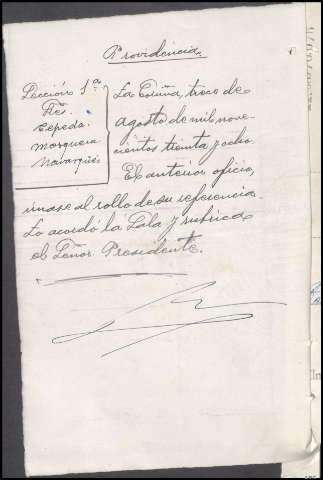 Providencia.
Sección 1ª
Sres.
Cepeda.
Morquera
Navarques
La Coruña, trece de
agosto de mil nove-
cientos treinta y ocho.
El anterior oficio,
únase al rollo de su referencia.
Lo acordó la Sala y rubrica
el Señor Presidente.